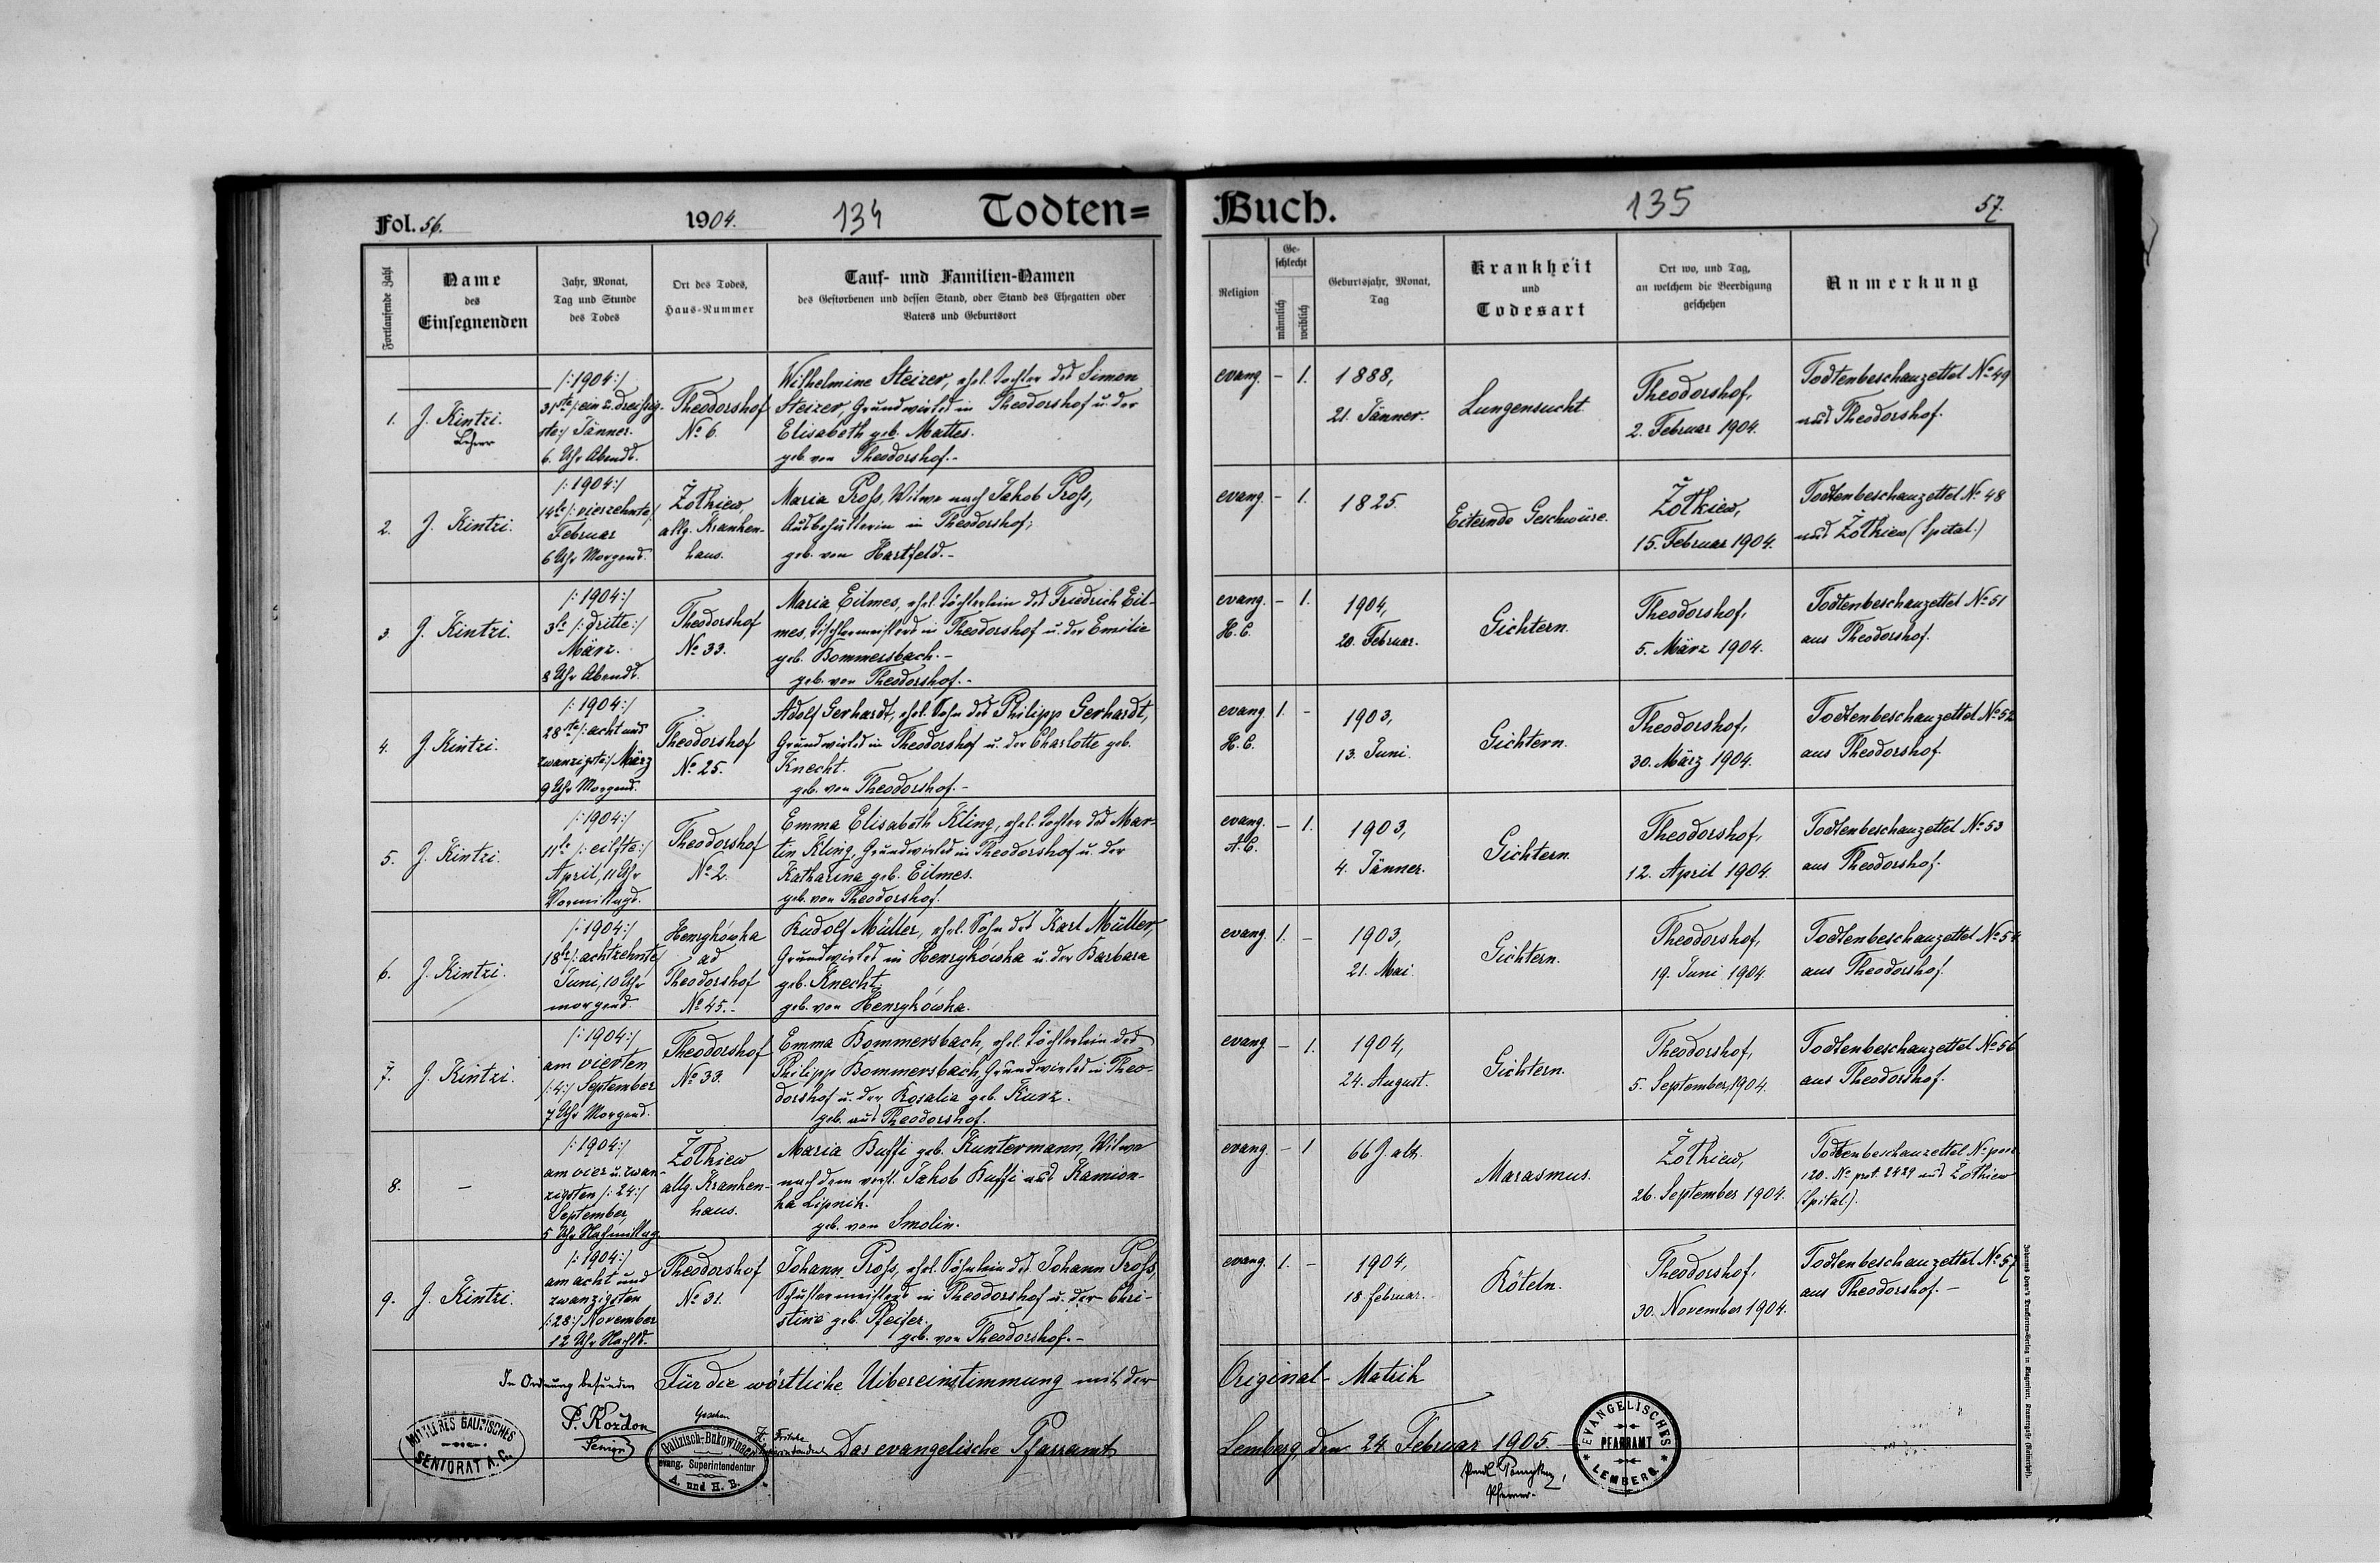 Fol. 56. 1904. 134 Todten=
Fortlaufende Zahl
Name
des
Einsegnenden
Jahr, Monat,
Tag und Stunde
des Todes
Ort des Todes,
Haus-Nummer
Tauf- und Familien-Namen
des Gestorbenen und dessen Stand, oder Stand des Ehegatten oder
Vaters und Geburtsort
1.
J. Kintzi.
Lehrer
/:1904:/
31te /:ein u. dreißig-
ste:/ Jänner.
6. Uhr Abends.
Theodorshof
No 6.
Wilhelmine Steizer, ehel. Tochter des Simon
Steizer, Grundwirtes in Theodorshof u. der
Elisabeth geb. Mattes.
geb. von Theodorshof.-
2.
J. Kintzi.
/:1904:/
14te /:vierzehnte:/
Februar
6 Uhr Morgens.
Żołkiew,
allg. Kranken-
haus.
Maria Proß, Witwe nach Jakob Proß,
Ausbehälterin in Theodorshof;
geb. von Hartfeld.-
3.
J. Kintzi.
/:1904:/
3te /:dritte:/
März.
8 Uhr Abends.
Theodorshof
No 33.
Maria Eilmes, ehel. Töchterlein des Friedrich Eil-
mes, Tischlermeisters in Theodorshof u. der Emilie
geb. Bommersbach.-
geb. von Theodorshof.-
4.
J. Kintzi.
/:1904:/
28te /:acht und
zwanzigste:/ März
9 Uhr Morgens.
Theodorshof
No 25.
Adolf Gerhardt, ehel. Sohn des Philipp Gerhardt,
Grundwirtes in Theodorshof u. der Charlotte geb.
Knecht.
geb. von Theodorshof.-
5.
J. Kintzi.
/:1904:/
11te /:eilfte:/
April, 11 Uhr
Vormittags.
Theodorshof
No 2.
Emma Elisabeth Kling, ehel. Tochter des Mar-
tin Kling, Grundwirtes in Theodorshof u. der
Katharina geb. Eilmes.
geb. von Theodorshof.
6.
J. Kintzi.
/:1904:/
18te /:achtzehnte:/
Juni, 10 Uhr
morgens.
Henrykówka
ad
Theodorshof
No 45.-
Rudolf Müller, ehel. Sohn des Karl Müller,
Grundwirtes in Henrykówka u. der Barbara
geb. Knecht,
geb. von Henrykówka.
7.
J. Kintzi.
/:1904:/
am vierten
/:4:/ September
7 Uhr Morgens.
Theodorshof
No 33.
Emma Bommersbach, ehel. Töchterlein des
Philipp Bommersbach, Grundwirtes in Theo-
dorshof u. der Rosalia geb. Kurz.
geb. aus Theodorshof.
8.
-
/:1904:/
am vier u. zwan-
zigsten /:24:/
September,
5 Uhr Nachmittag
Żołkiew
allg. Kranken-
haus.
Maria Buffi geb. Kuntermann, Witwe
nach dem verst. Jakob Buffi aus Kamion-
ka Lipnik.
geb. von Smolin.
9.
J. Kintzi.
/:1904:/
am acht und
zwanzigsten
/:28:/ November
12 Uhr Nachts.
Theodorshof
No 31.
Johann Proß, ehel. Söhnlein des Johann Proß,
Schustermeisters in Theodorshof u. der Chri-
stine geb. Pfeifer.
geb. von Theodorshof.-
In Ordnung befunden
P. Kozdon
Senior
MITTLERES GALIZISCHES
SENIORAT A.C.
Gesehen
Fritsche
Superintendent
Galizisch-Bukowinaer
evang. Superintendentur
A. und H. B.
Für die wörtliche Uibereinstimmung mit der
Das evangelische Pfarramt
Buch. 135 57.
Religion
Ge-
schlecht
männlich
weiblich
Geburtsjahr, Monat,
Tag
Krankheit
und
Todesart
Ort wo, und Tag,
an welchem die Beerdigung
geschehen
Anmerkung
evang. - 1.
1888,
21. Jänner.
Lungensucht
Theodorshof,
2. Februar 1904.
Todtenbeschauzettel No 49
aus Theodorshof.
evang. - 1.
1825.
Eiternde Geschwüre.
Żołkiew,
15. Februar 1904.
Todtenbeschauzettel No 48
aus Żołkiew (Spital.)
evang. - 1.
H. C.
1904,
20. Februar.
Gichtern.
Theodorshof,
5. März 1904.
Todtenbeschauzettel No 51
aus Theodorshof.
evang. 1. -
H. C.
1903,
13. Juni.
Gichtern.
Theodorshof,
30. März 1904.
Todtenbeschauzettel No 52
aus Theodorshof.
evang. - 1.
A. C.
1903,
4. Jänner.
Gichtern.
Theodorshof,
12. April 1904.
Todtenbeschauzettel No 53
aus Theodorshof.
evang. 1. -
1903,
21. Mai.
Gichtern.
Theodorshof,
19. Juni 1904.
Todtenbeschauzettel No 54
aus Theodorshof.
evang - 1.
1904,
24. August.
Gichtern.
Theodorshof,
5. September, 1904.
Todtenbeschauzettel No 56
aus Theodorshof.
evang. - 1
66 J. alt.
Marasmus.
Żołkiew,
26. September 1904.
Todtenbeschauzettel No
120. No prot. 2429 aus Żołkiew
(Spital.).
evang. 1. -
1904,
18 Februar.
Röteln.
Theodorshof,
30. November 1904.
Todtenbeschauzettel No 57
aus Theodorshof.-
Original-Matrik
Lemberg, den 24. Februar 1905.
Pfarrer.
EVANGELISCHES
PFARRAMT
LEMBERG